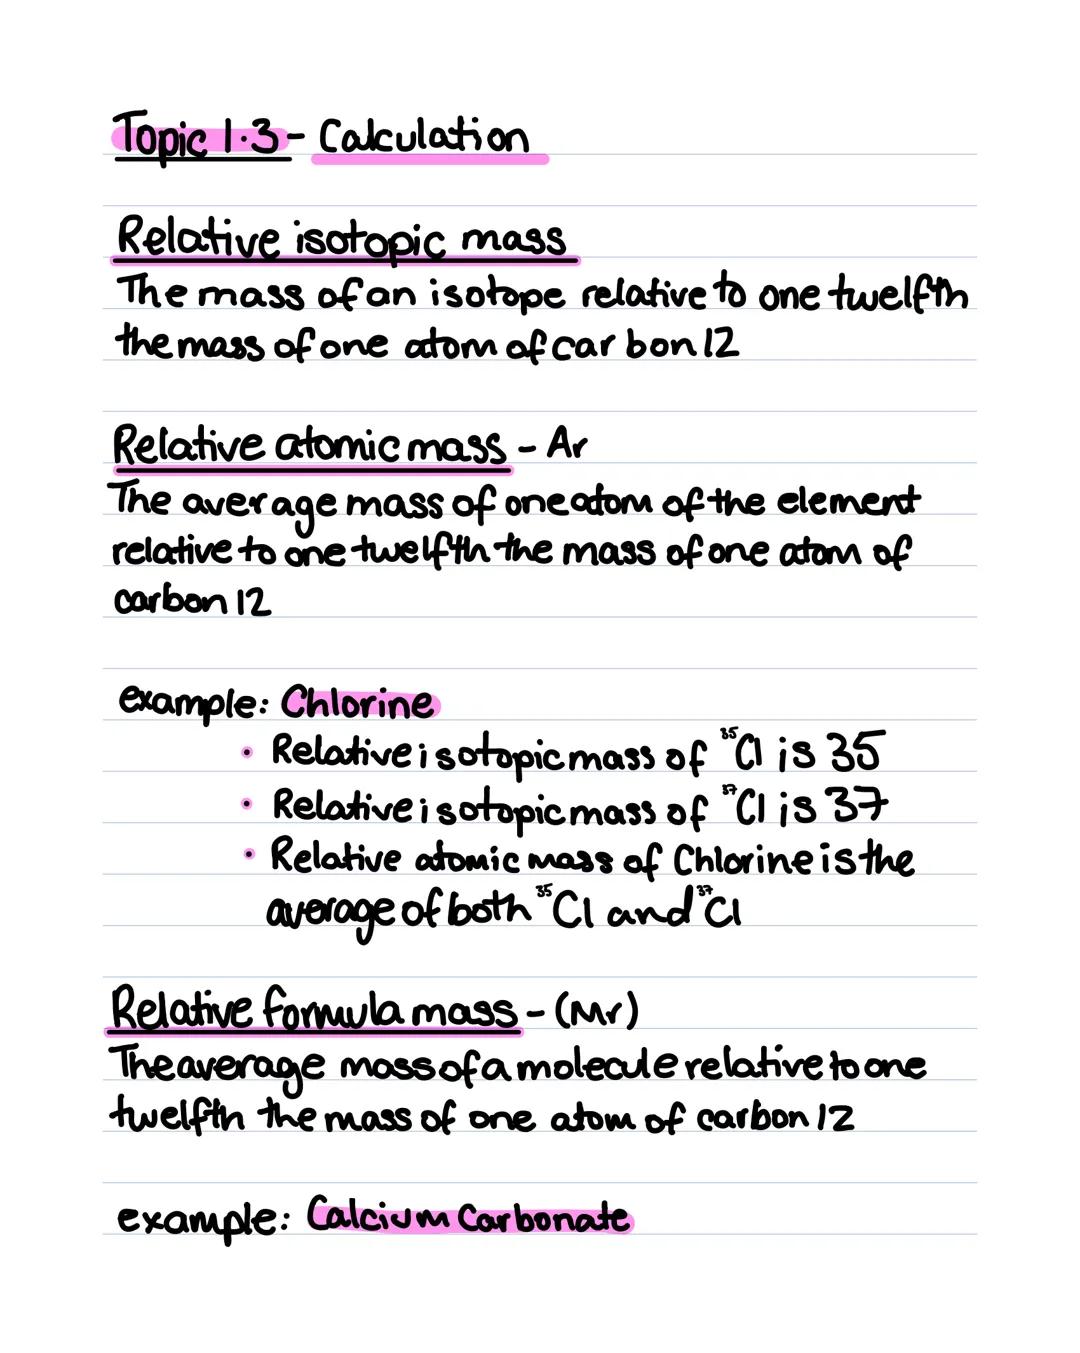 Topic 1.3 - Calculation
Relative isotopic mass
The mass of an isotope relative to one twelfth
the mass of one atom of carbon 12
Relative atomic mass - Ar
The average mass of one atom of the element
relative to one twelfth the mass of one atom of
carbon 12
example: Chlorine
• Relative isotopic mass of ³⁵Cl is 35
• Relative isotopic mass of ³⁷Cl is 37
• Relative atomic mass of Chlorine is the
average of both ³⁵Cl and ³⁷Cl
Relative formula mass - (Mr)
The average mass of a molecule relative to one
twelfth the mass of one atom of carbon 12
example: Calcium Carbonate